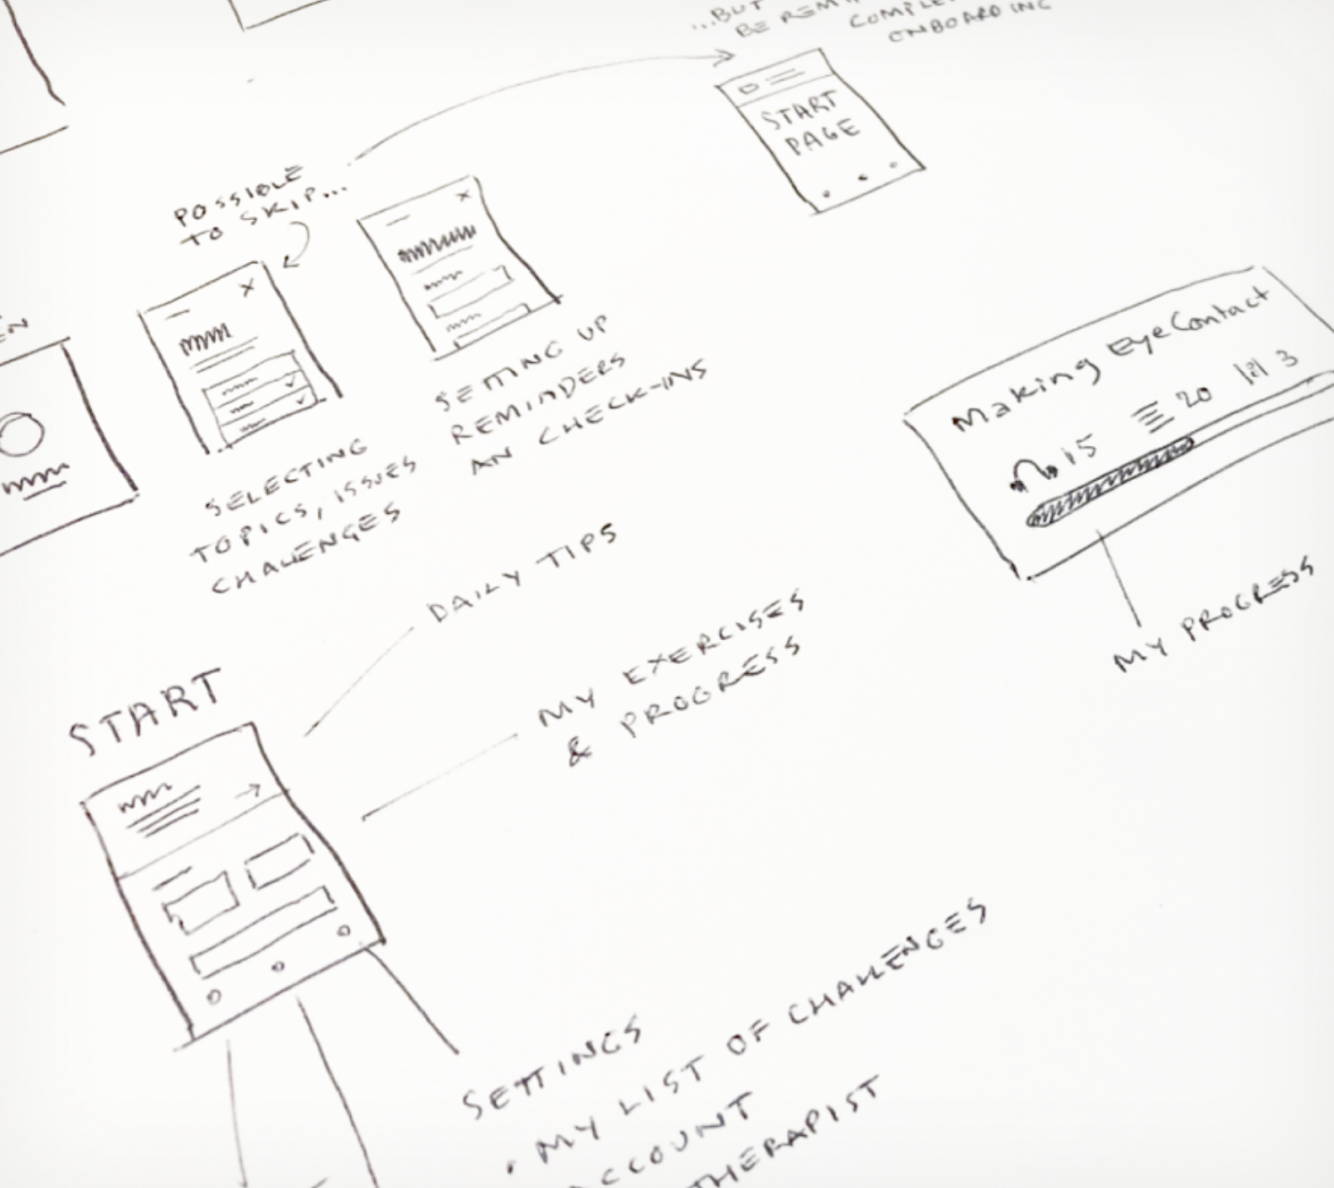 ...BUT
BE
ONBOARDING
START
PAGE
POSSIBLE
TO SKIP...
SELECTING
TOPICS, ISSUES
CHALENGES
SETTING UP
REMINDERS
AN CHECK-INS
Making Eye Contact
15 20 3
MY PROGRESS
DAILY TIPS
MY EXERCISES
& PROGRESS
START
SETTINGS
. MY LIST OF CHALLENGES
ACCOUNT
THERAPIST